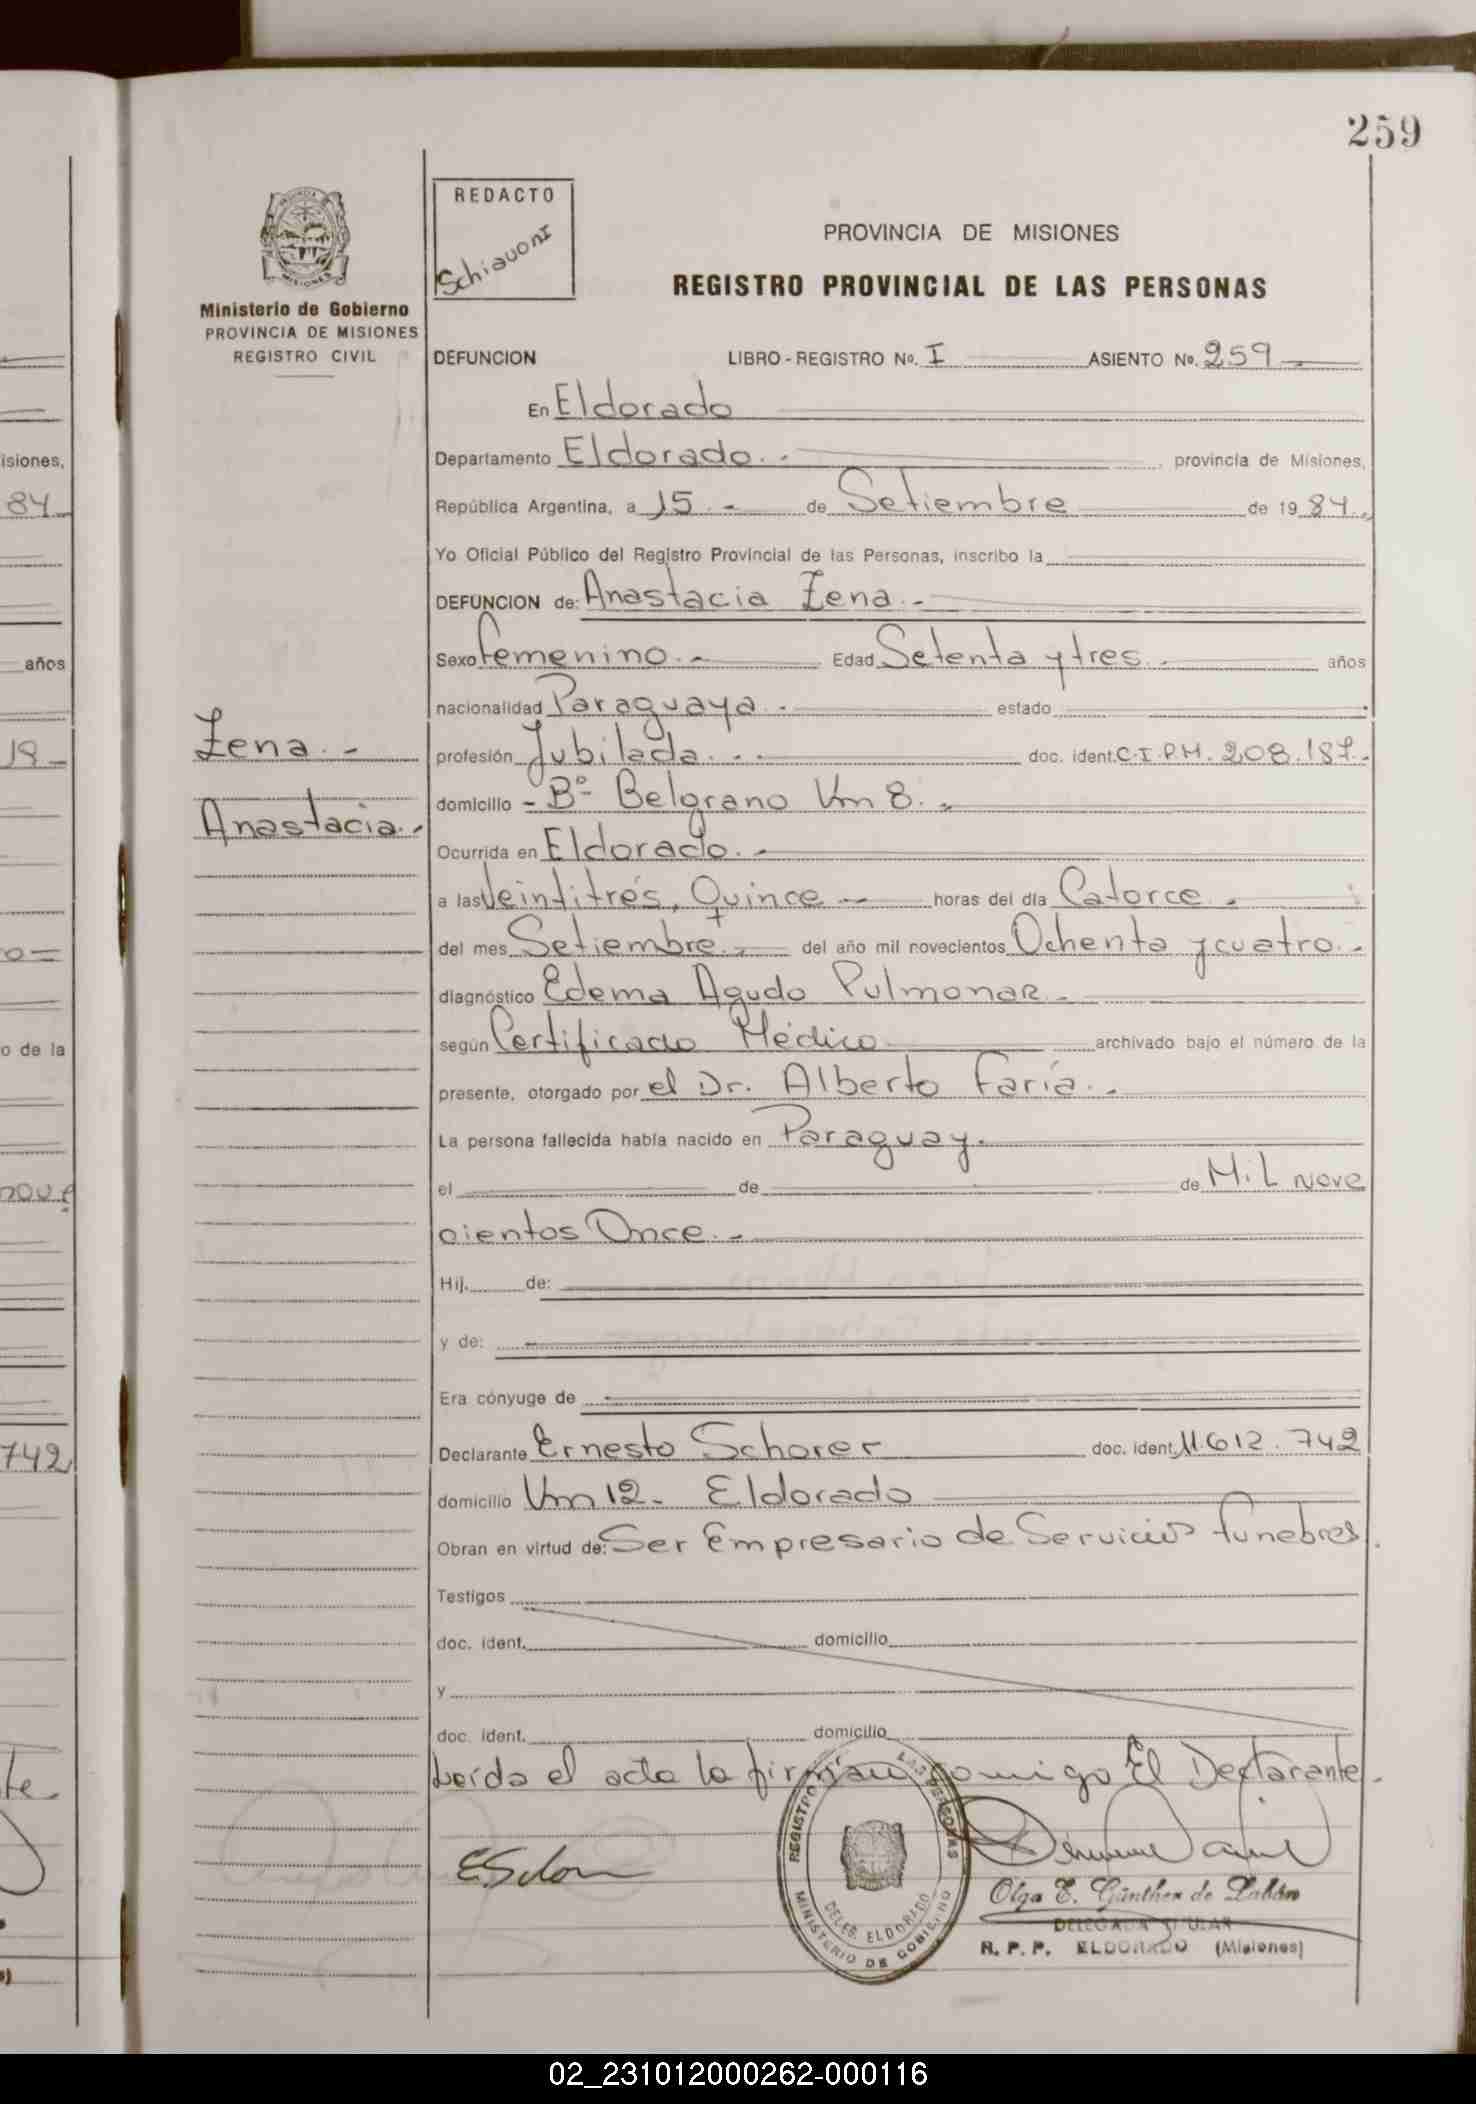 259
REDACTO
Schiavoni
Ministerio de Gobierno
PROVINCIA DE MISIONES
REGISTRO CIVIL
PROVINCIA DE MISIONES
REGISTRO PROVINCIAL DE LAS PERSONAS
DEFUNCION LIBRO - REGISTRO No. I ASIENTO No. 259
En Eldorado
Departamento Eldorado.- provincia de Misiones,
República Argentina, a 15.- de Setiembre de 1984.
Yo Oficial Público del Registro Provincial de las Personas, inscribo la
DEFUNCION de: Anastacia Zena.-
Sexo Femenino.- Edad Setenta y tres.- años
nacionalidad Paraguaya.- estado
Zena.-
Anastacia.-
profesión Jubilada.- doc. ident. C.I.P.M. 208.187.-
domicilio - Bº Belgrano Km 8.-
Ocurrida en Eldorado.-
a las Veintitrés, Quince horas del día Catorce.-
del mes Setiembre.- del año mil novecientos Ochenta y cuatro.-
diagnóstico Edema Agudo Pulmonar.-
según Certificado Médico archivado bajo el número de la
presente, otorgado por el Dr. Alberto Faría.-
La persona fallecida había nacido en Paraguay.
el de de Mil Nove
cientos Once.-
Hij. de:
y de:
Era cónyuge de
Declarante Ernesto Schorer doc. ident. 11.612.742
domicilio Km 12. Eldorado
Obran en virtud de: Ser Empresario de Servicios funebres.
Testigos
doc. ident. domicilio
y
doc. ident. domicilio
Leída el acta la firman comigo El Declarante.
REGISTRO LAS PERSONAS
DELEG. ELDORADO
MINISTERIO DE GOBIERNO
Olga E. Günther de
DELEGADA TITULAR
R. P. P. ELDORADO (Misiones)
isiones,
84
años
19
o de la
nove
742
te.
02_231012000262-000116